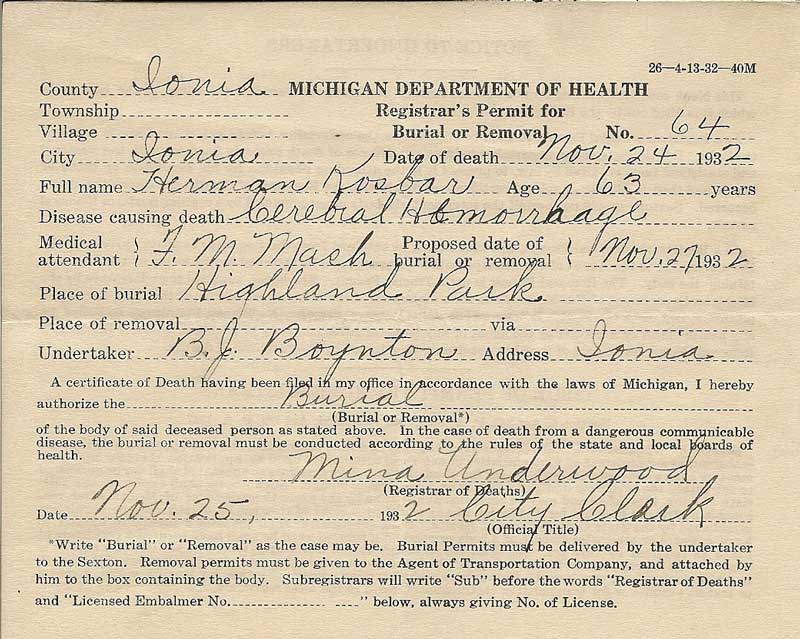 26—4-13-32—40M
County Ionia MICHIGAN DEPARTMENT OF HEALTH
Township Registrar's Permit for
Village Burial or Removal No. 64
City Ionia Date of death Nov. 24 1932
Full name Herman Kosbar Age 63 years
Disease causing death Cerebial Hemorrhage
Medical attendant F. M. Mash Proposed date of burial or removal Nov. 27 1932
Place of burial Highland Park
Place of removal via
Undertaker B. J. Boynton Address Ionia
A certificate of Death having been filed in my office in accordance with the laws of Michigan, I hereby
authorize the Burial
(Burial or Removal*)
of the body of said deceased person as stated above. In the case of death from a dangerous communicable
disease, the burial or removal must be conducted according to the rules of the state and local boards of
health.
Mina Underwood
(Registrar of Deaths)
Date Nov. 25, 1932 City Clark
(Official Title)
*Write "Burial" or "Removal" as the case may be. Burial Permits must be delivered by the undertaker
to the Sexton. Removal permits must be given to the Agent of Transportation Company, and attached by
him to the box containing the body. Subregistrars will write "Sub" before the words "Registrar of Deaths"
and "Licensed Embalmer No. " below, always giving No. of License.